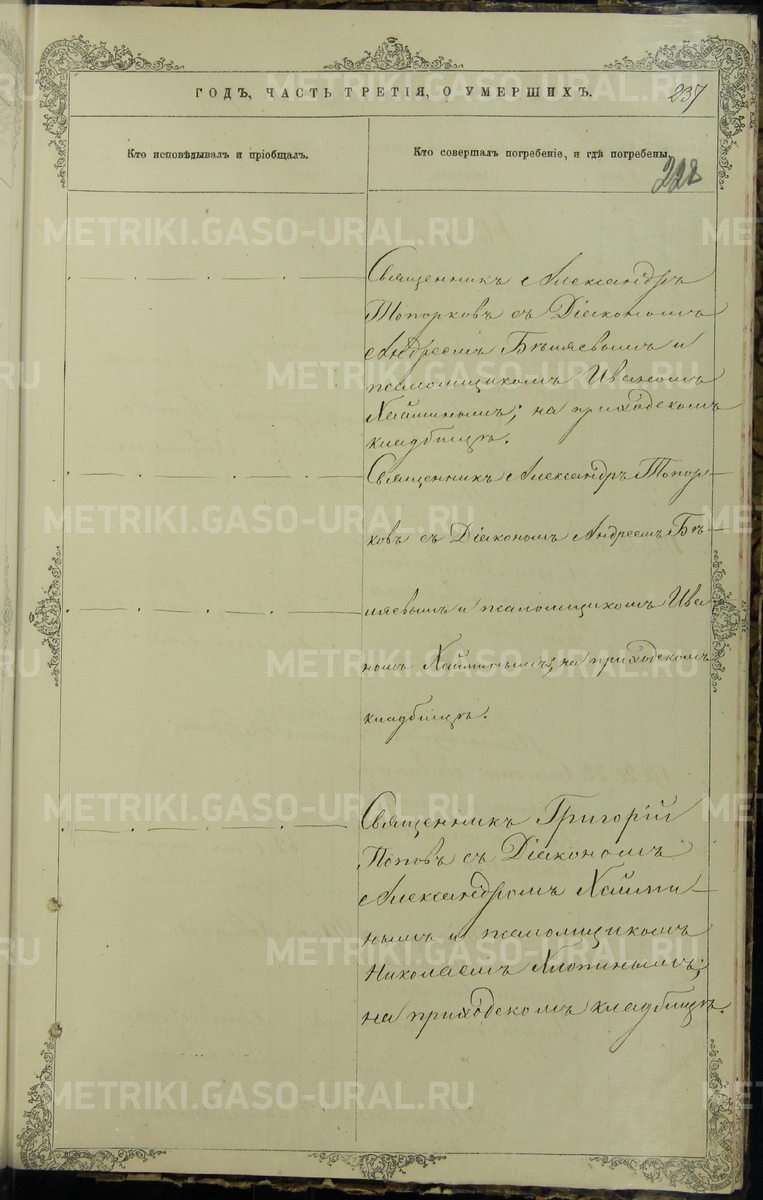 ГОДЪ, ЧАСТЬ ТРЕТІЯ, О УМЕРШИХЪ.
237
Кто исповѣдывалъ и пріобщалъ.
Кто совершалъ погребеніе, и гдѣ погребены.
228
Священникъ Александръ
Топорковъ съ Діакономъ
Андреемъ Бѣляевымъ и
псаломщикомъ Иваномъ
Хайминымъ; на приходскомъ
кладбищѣ.
Священникъ Александръ Топор-
ковъ съ Діакономъ Андреемъ Бѣ-
ляевымъ и псаломщикомъ Ива
номъ Хайминымъ; на приходскомъ
кладбищѣ.
Священникъ Григорій
Поповъ съ Діакономъ
Александромъ Хайми-
нымъ и псаломщикомъ
Николаемъ Хлопинымъ;
на приходскомъ кладбищѣ.
METRIKI.GASO-URAL.RU